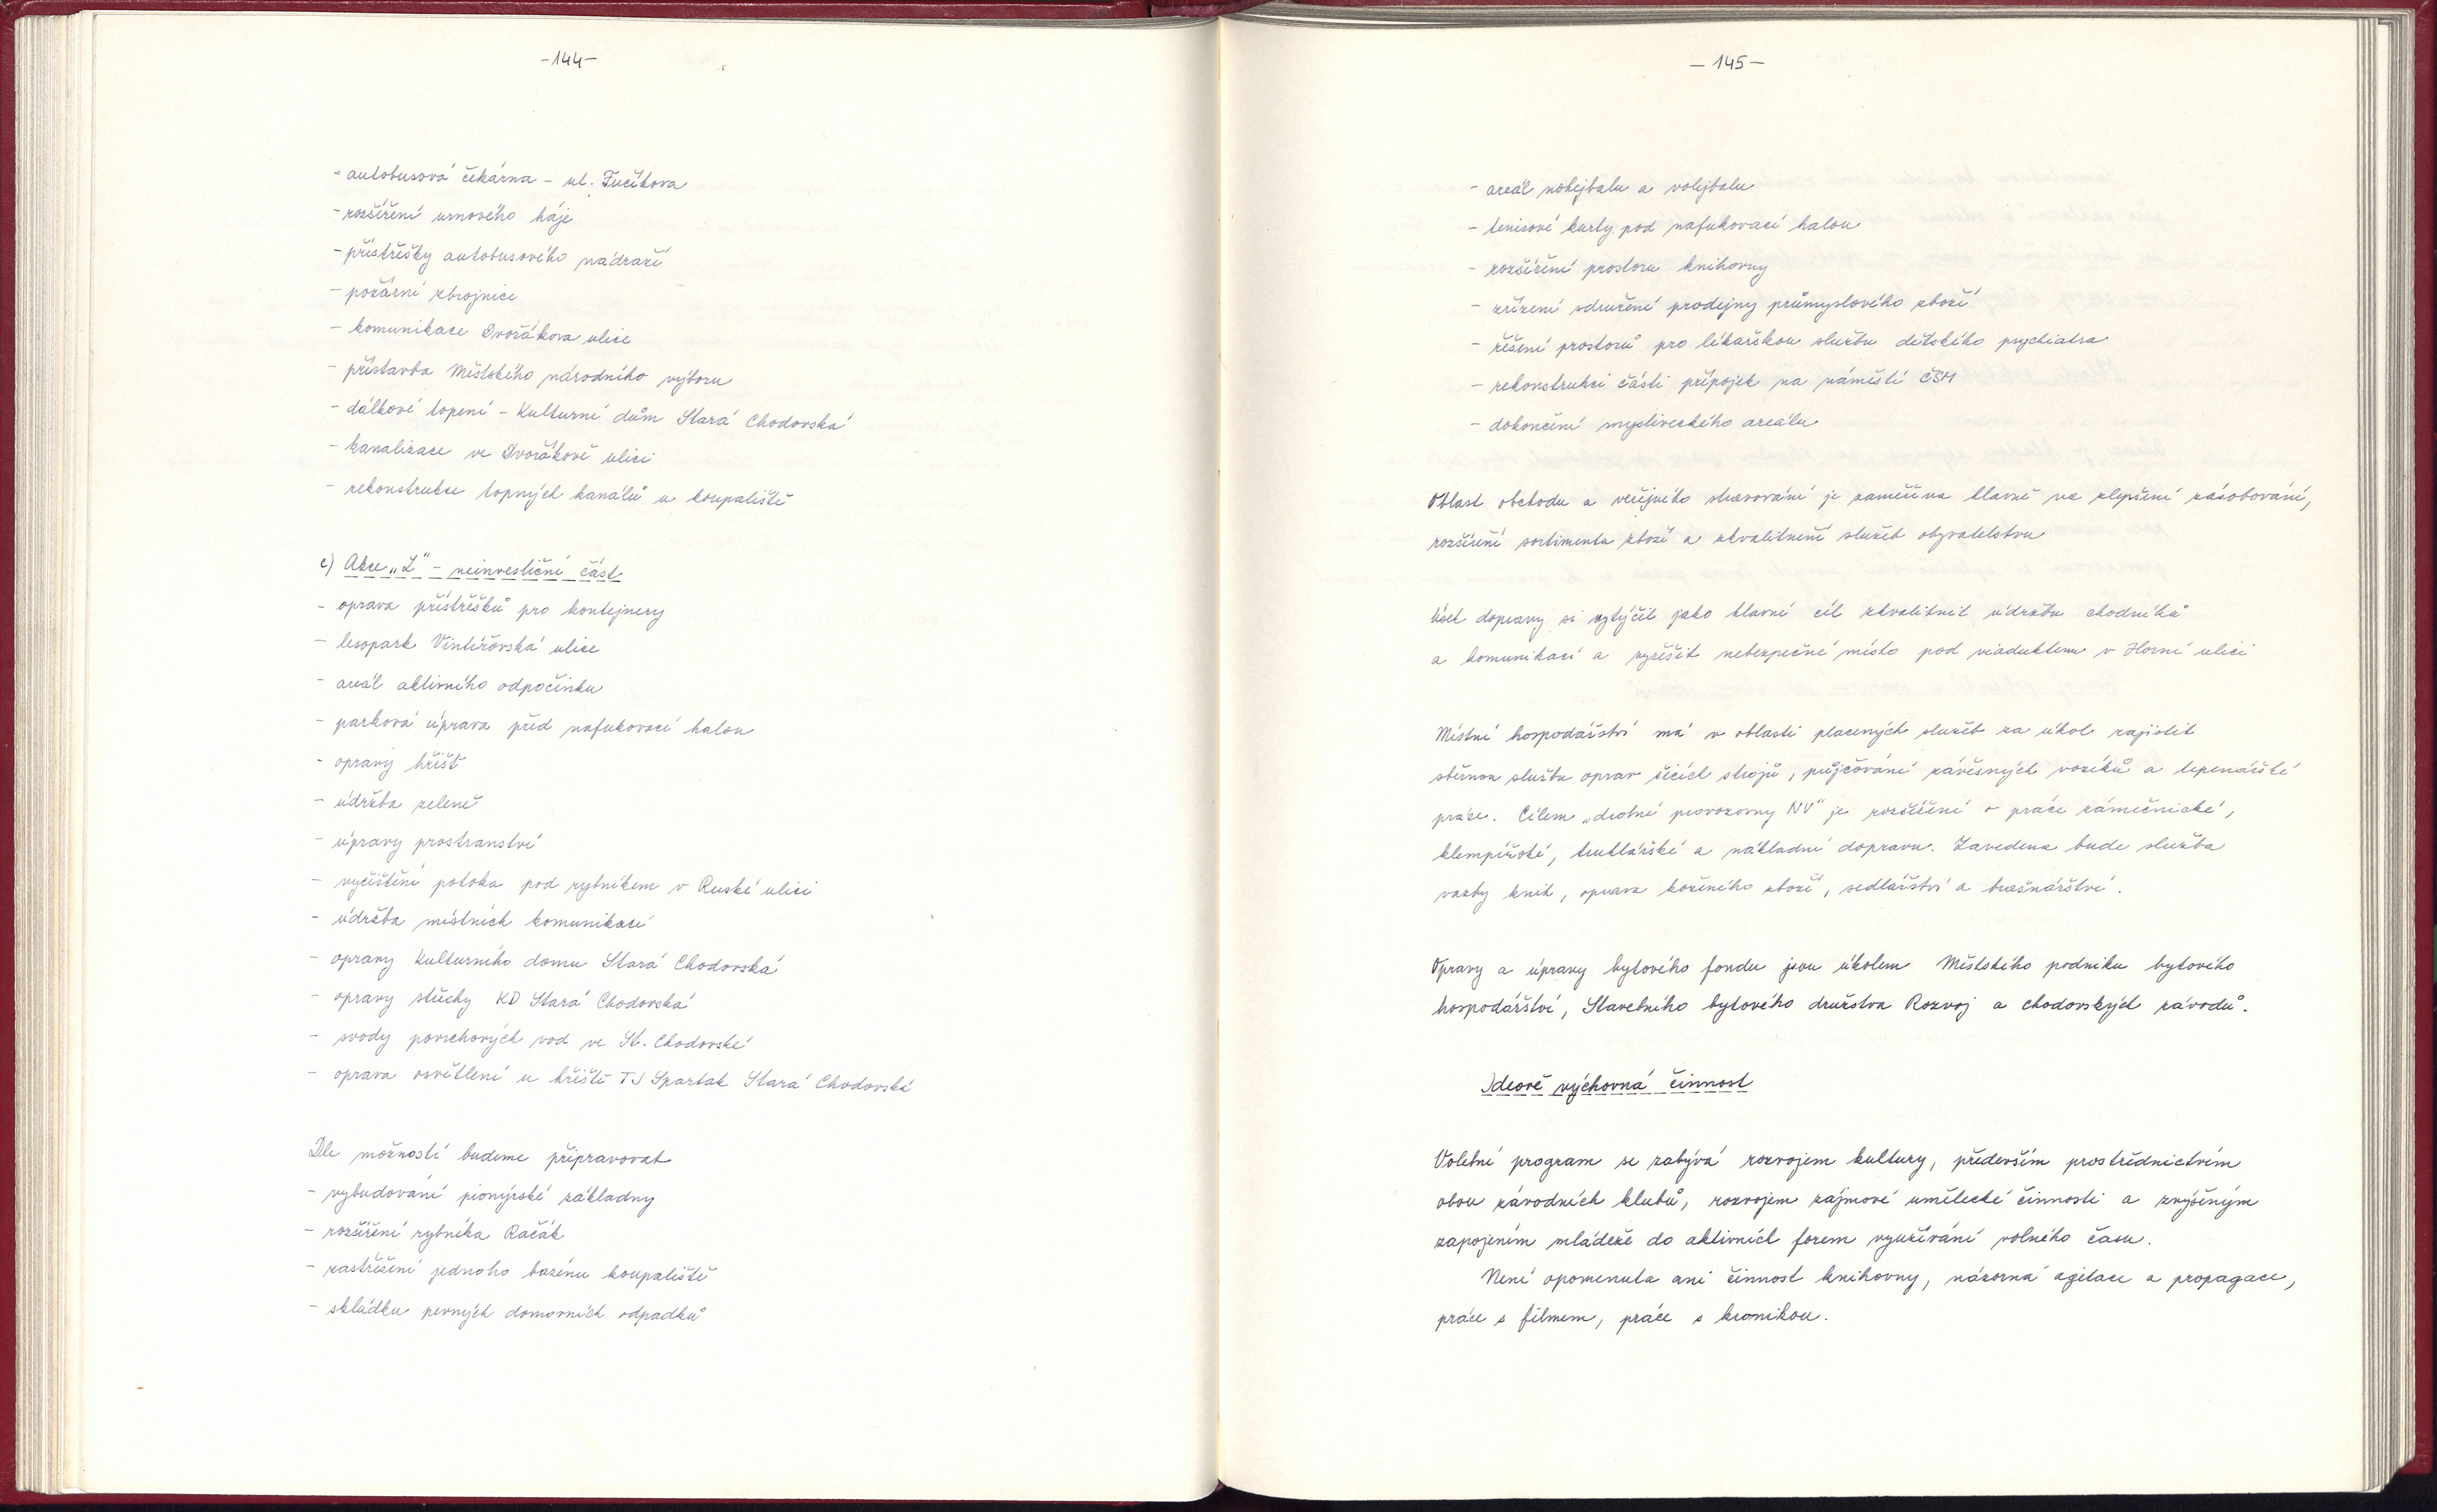 -144-
- autobusová čekárna - ul. Fučíkova
- rozšíření urnového háje
- přístřešky autobusového nádraží
- požární zbrojnice
- komunikace Dvořákova ulice
- přístavba Městského národního výboru
- dálkové topení - Kulturní dům Stará Chodovská
- kanalizace ve Dvořákově ulici
- rekonstrukce topných kanálů u koupaliště
c) Akce „Z" - neinvestiční část
- oprava přístřešků pro kontejnery
- lesopark Vintířovská ulice
- areál aktivního odpočinku
- parková úprava před nafukovací halou
- opravy hřišť
- údržba zeleně
- úpravy prostranství
- vyčištění potoka pod rybníkem v Ruské ulici
- údržba místních komunikací
- opravy Kulturního domu Stará Chodovská
- opravy střechy KD Stará Chodovská
- svody povrchových vod ve St. Chodovské
- oprava osvětlení u hřiště TJ Spartak Stará Chodovská
Dle možností budeme připravovat
- vybudování pionýrské základny
- rozšíření rybníka Račák
- zastřešení jednoho bazénu koupaliště
- skládku pevných domovních odpadků
- 145 -
- areál nohejbalu a volejbalu
- tenisové kurty pod nafukovací halou
- rozšíření prostoru knihovny
- zřízení sdružené prodejny průmyslového zboží
- řešení prostorů pro lékařskou službu dětského psychiatra
- rekonstrukci části přípojek na náměstí ČSM
- dokončení mysliveckého areálu
Oblast obchodu a veřejného stravování je zaměřena hlavně na zlepšení zásobování,
rozšíření sortimentu zboží a zkvalitnění služeb obyvatelstvu
Úsek dopravy si vytýčil jako hlavní cíl zkvalitnit údržbu chodníků
a komunikací a vyřešit nebezpečné místo pod viaduktem v Horní ulici
Místní hospodářství má v oblasti placených služeb za úkol zajistit
sběrnou službu oprav šicích strojů, půjčování závěsných vozíků a lepenářské
práce. Cílem „drobné provozovny NV" je rozšíření o práce zámečnické,
klempířské, truhlářské a nákladní dopravu. Zavedena bude služba
vazby knih, oprava koženého zboží, sedlářství a brašnářství.
Opravy a úpravy bytového fondu jsou úkolem Městského podniku bytového
hospodářství, Stavebního bytového družstva Rozvoj a chodovských závodů.
Ideově výchovná činnost
Volební program se zabývá rozvojem kultury, především prostřednictvím
obou závodních klubů, rozvojem zájmové umělecké činnosti a zvýšeným
zapojením mládeže do aktivních forem využívání volného času.
Není opomenuta ani činnost knihovny, názorná agitace a propagace,
práce s filmem, práce s kronikou.